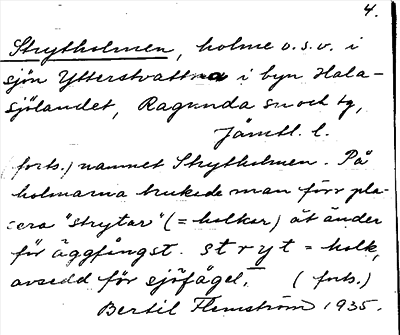 4.
Strytholmen, holme o.s.v. i
sjön Ytterstvattna i byn Hala-
sjölandet, Ragunda sn och tg,
Jämtl. l.
forts.) namnet Strytholmen. På
holmarna brukade man förr pla-
cera "strytar" (= holkar) åt änder
för äggfångst. stryt = holk,
avsedd för sjöfågel. (forts.)
Bertil Flemström 1935.